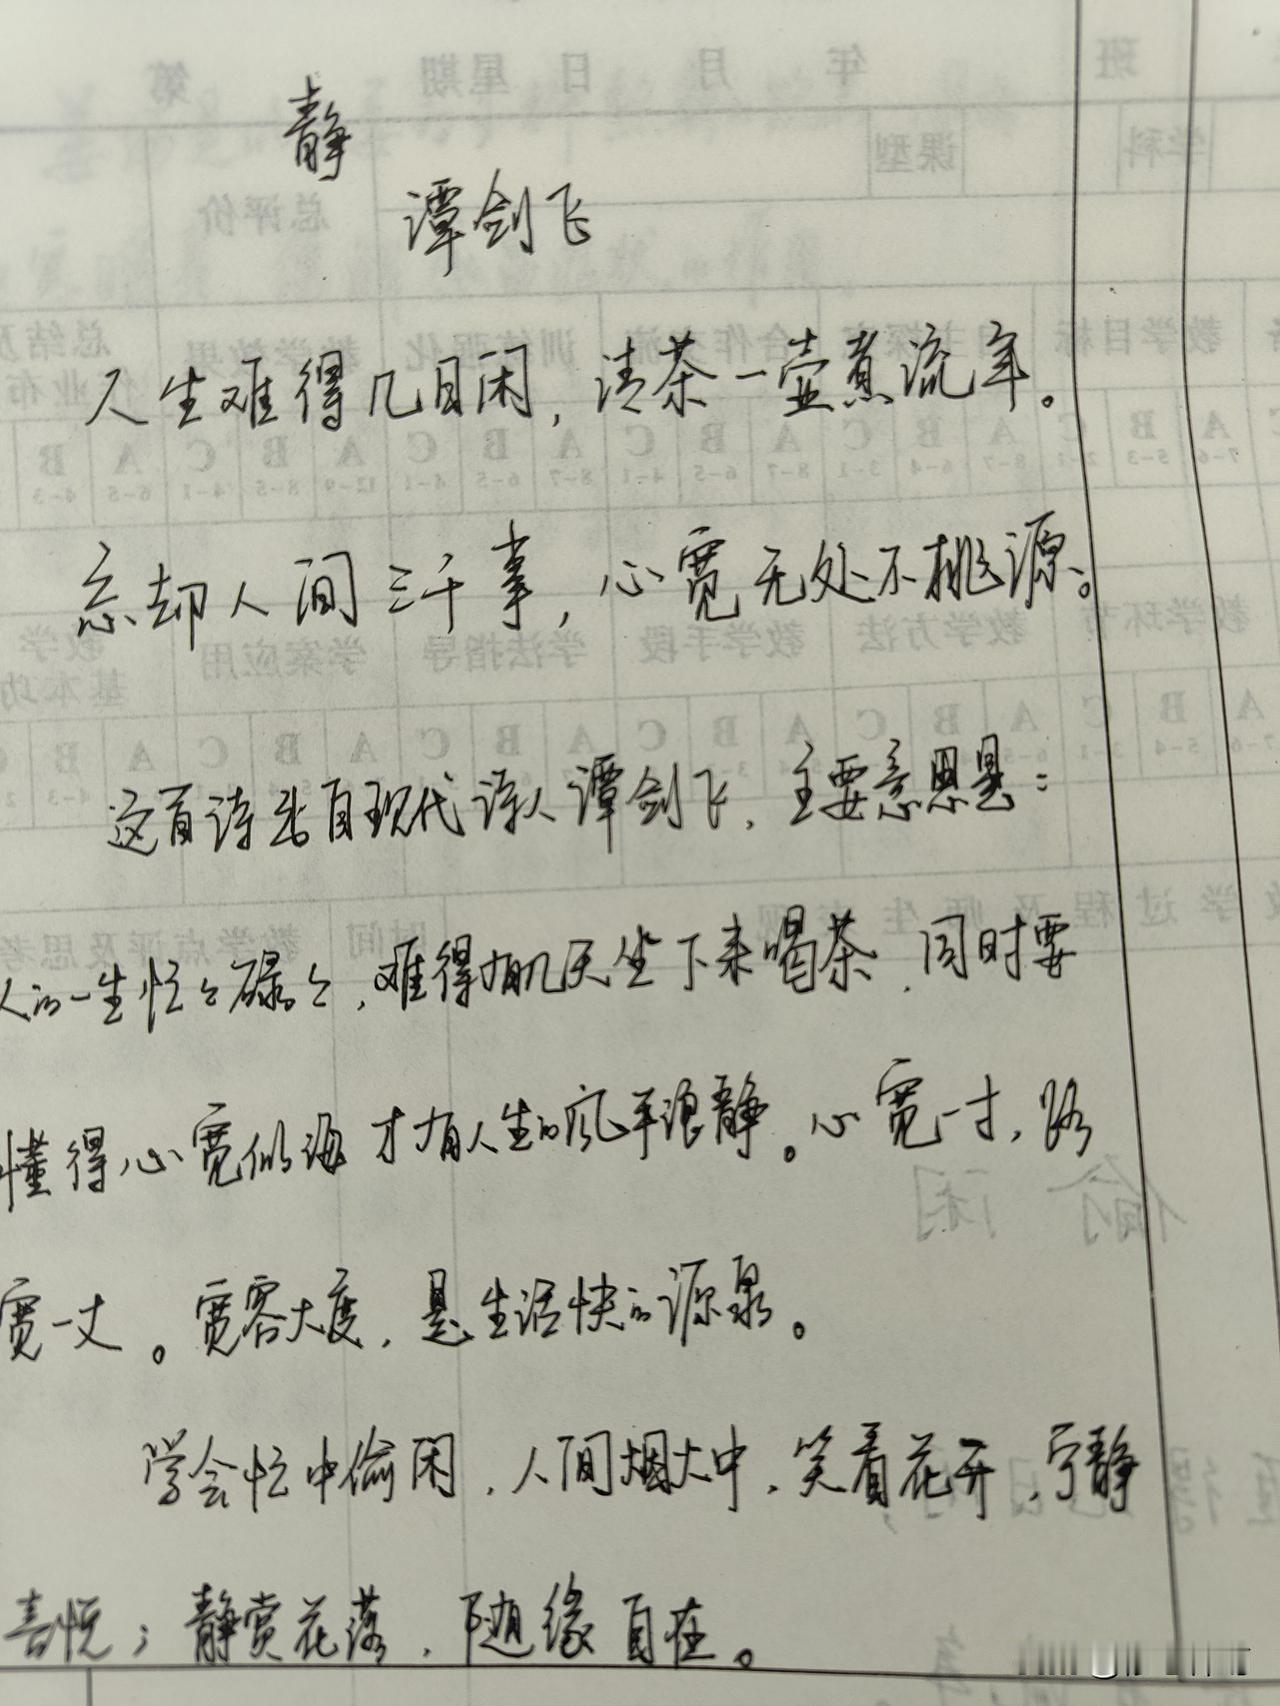 静
谭剑飞
人生难得几日闲，清茶一壶煮流年。
忘却人间三千事，心宽无处不桃源。
这首诗出自现代诗人谭剑飞，主要意思是：
人的一生忙忙碌碌，难得有几天坐下来喝茶，同时要
懂得心宽似海才有人生的风平浪静。心宽一寸，路
宽一丈。宽容大度，是生活快的源泉。
学会忙中偷闲，人间烟火中，笑看花开，宁静
喜悦；静赏花落，随缘自在。